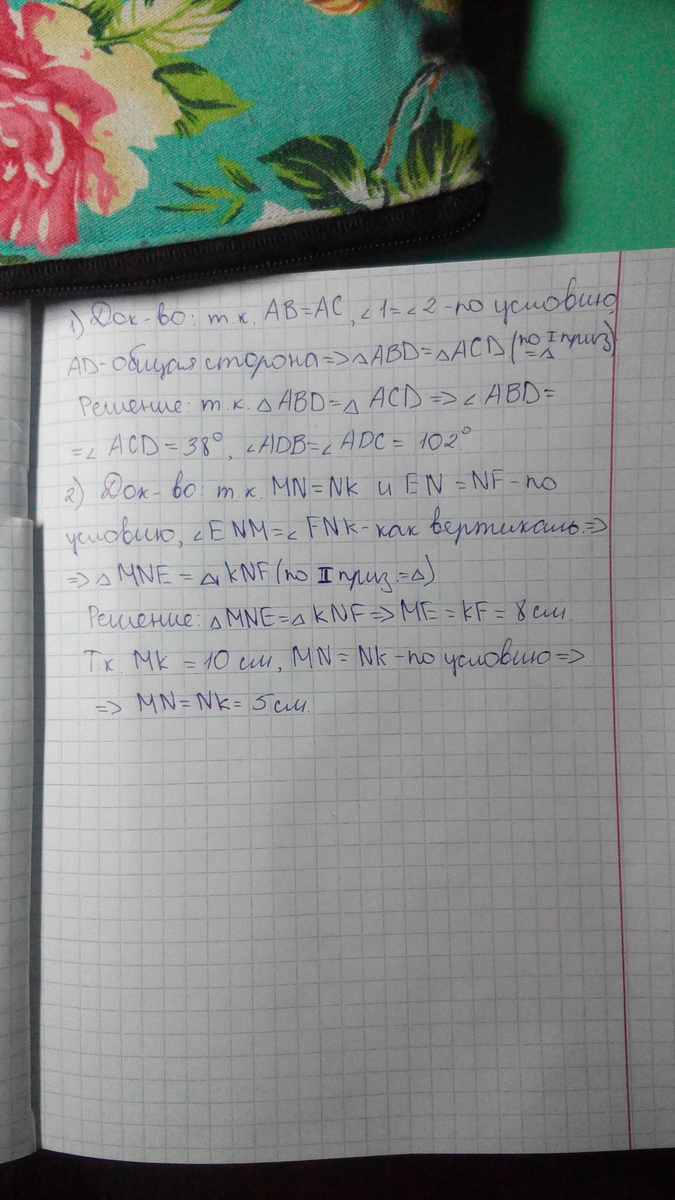 1) Док-во: т.к. AB=AC, ∠1=∠2-по условию,
AD-общая сторона=>△ABD=△ACD(по I приз.
=△)
Решение: т.к. △ABD=△ ACD=>∠ABD=
=∠ ACD=38°, ∠ADB=∠ADC= 102°
2) Док-во: т.к. MN=NK и EN=NF-по
условию, ∠ENM=∠FNK-как вертикаль.=>
=>△MNE=△KNF(по II приз.=△)
Решение: △MNE=△KNF=>ME=KF=8см.
Т.к. MK=10 см, MN=NK-по условию=>
=> MN=NK=5см.